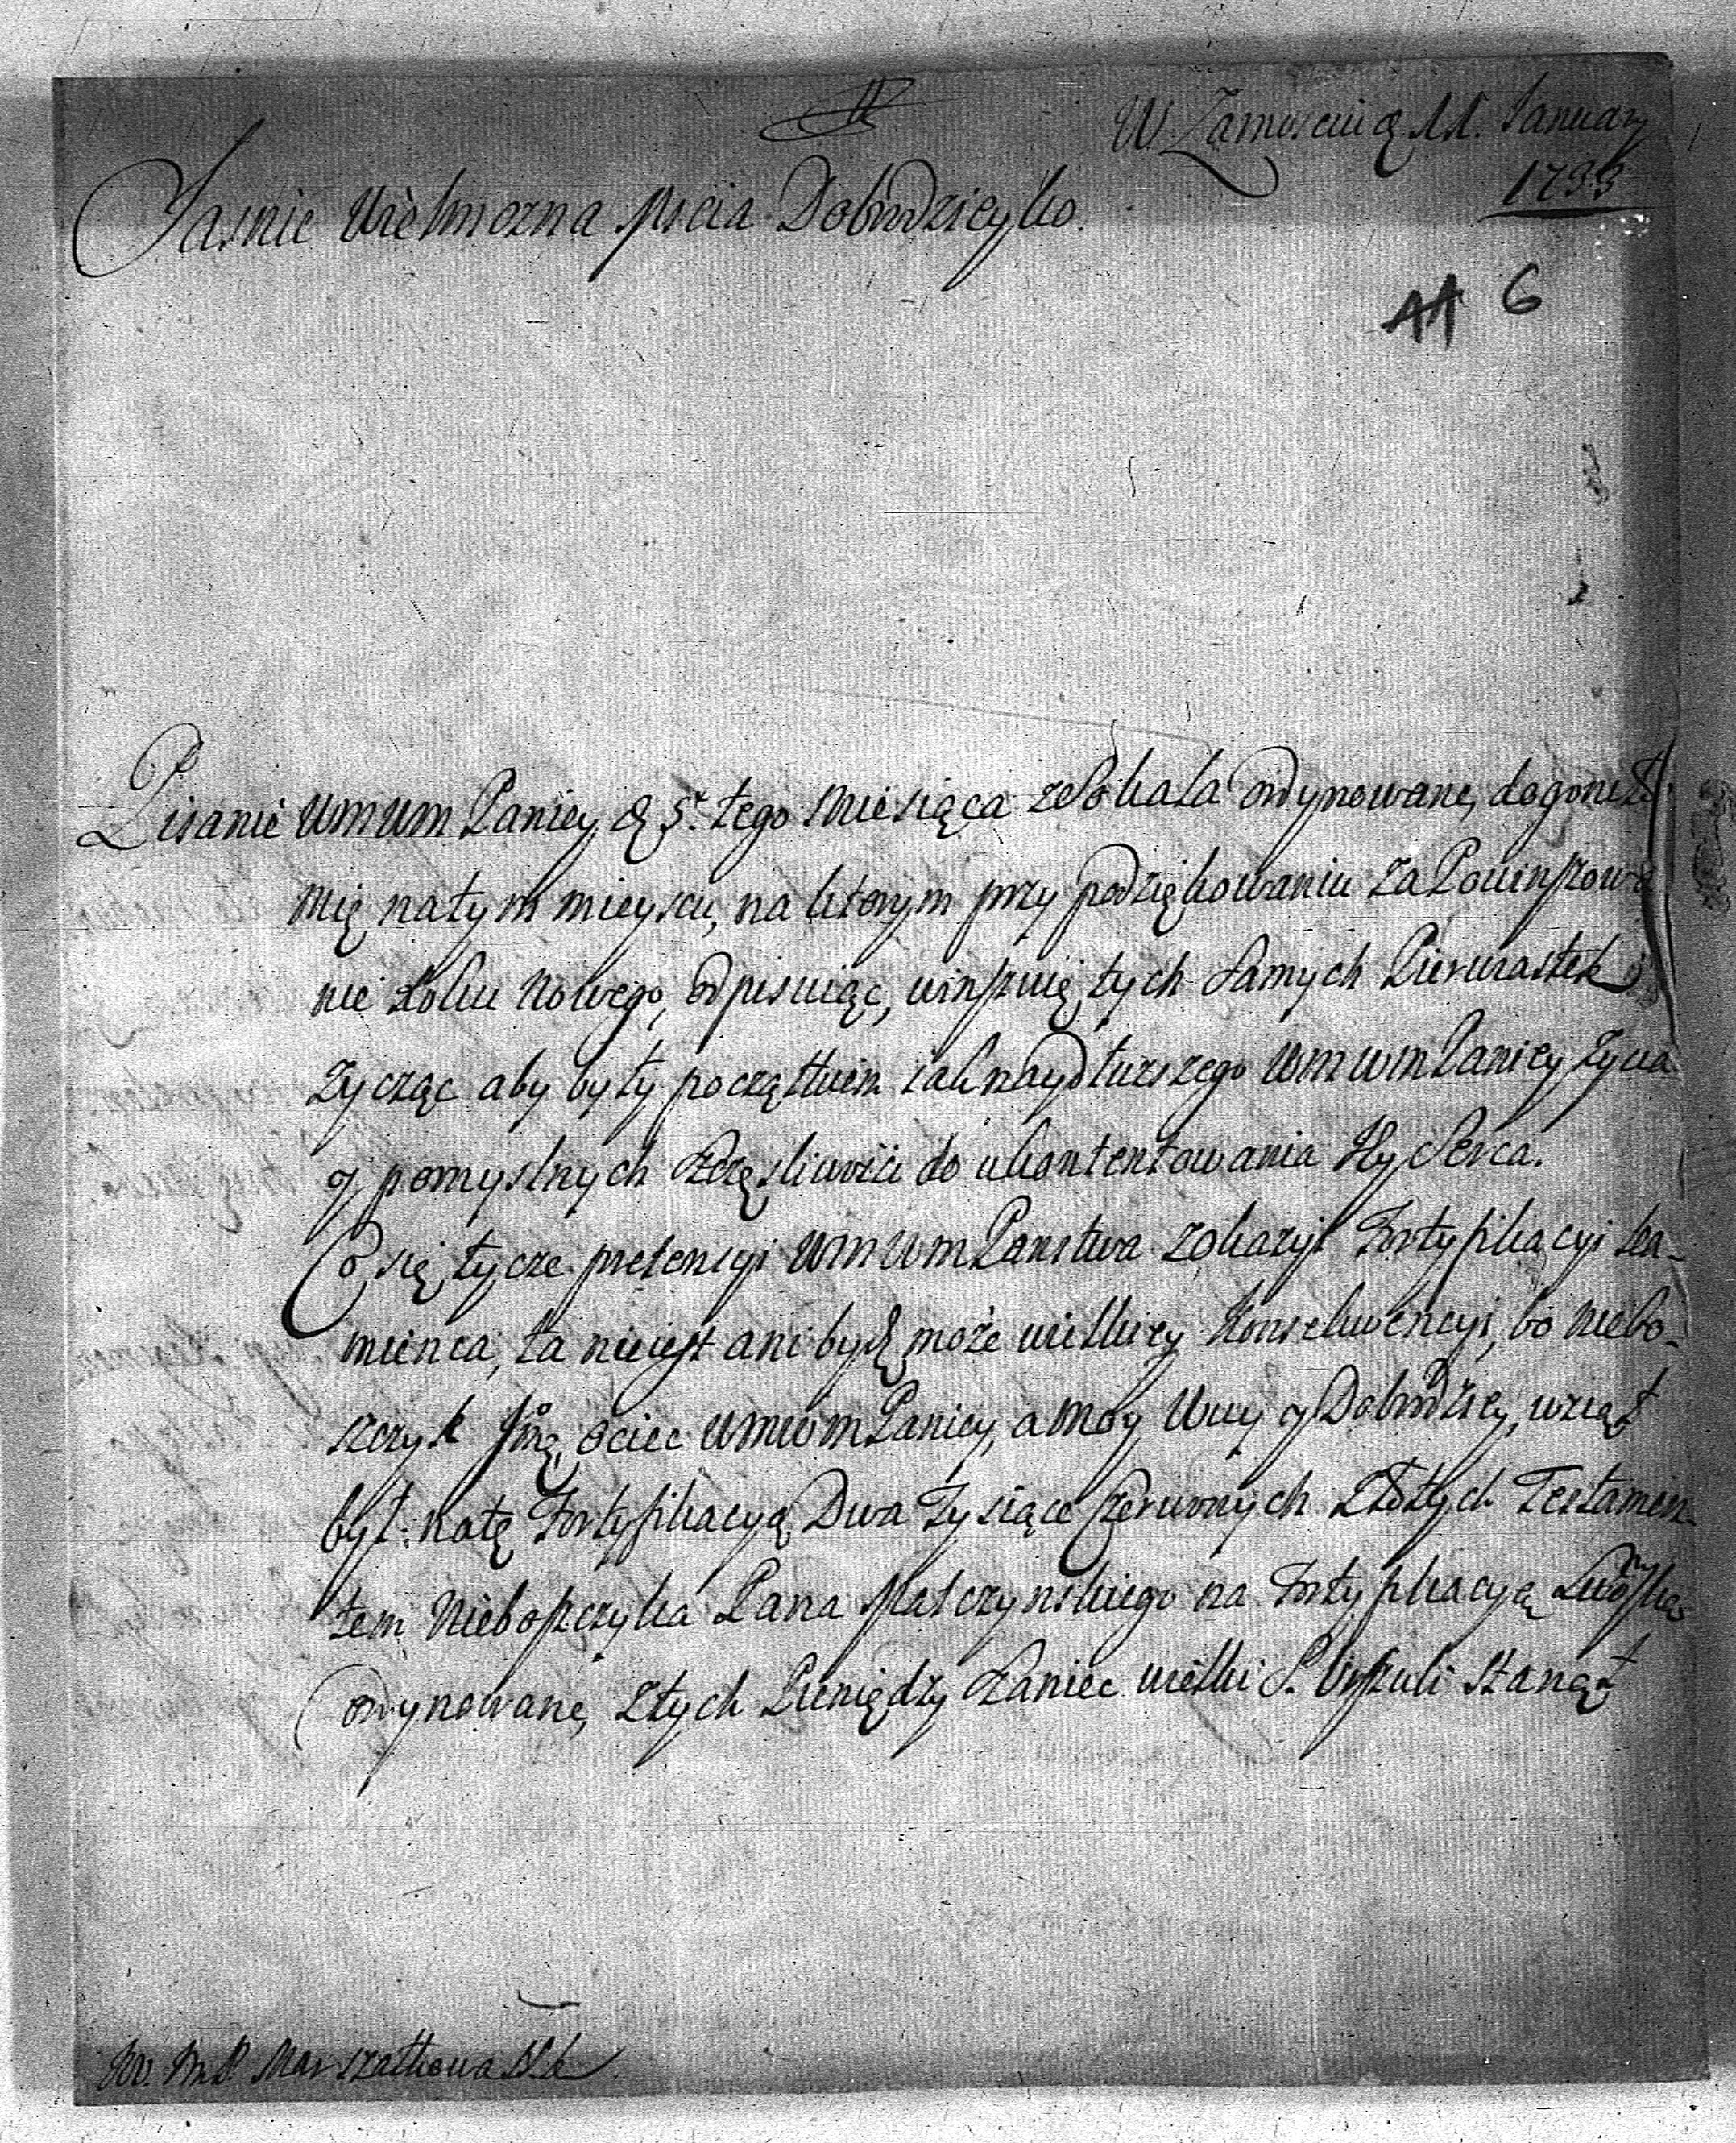 W Zamosciu d. 11. January
1733
Jasnie Wielmozna Mscia Dobrodzieyko.
6
Pisanie WMWMPaniey d 5. tego Miesiąca ordynowane, dogonieł
mię na tym mieyscu, na ktorym przy podziękowaniu za Powinszowa
nie Roku Nowego, odpisuiąc, winszuię tych Samych Pierwiastek
zycząc aby były początkiem iak naydłuzszego WMWMPaniey zycia
y pomyslnych szczęsliwosci do ukontentowania Jey Serca.
Co się tycze pretensyi WMWMPanstwa z okazyi Fortyfikacyi Ka-
mienca, ta nieiest ani bydź może wielkiey Konsekwencyi, bo Niebo-
szczyk Jmę ociec WMWMPaniey, a moy Wuy y Dobrodziey, wziął
był na tę Fortyfikacyą Dwa Tysiące Czerwonych Złotych Testamen-
tem Nieboszczyka Pana Matczynskiego na Fortyfikacyą Lwoską
ordynowane, z tych Pieniędzy Szaniec wielki S. Urszuli stanął
W. M. P. Marszałkowa